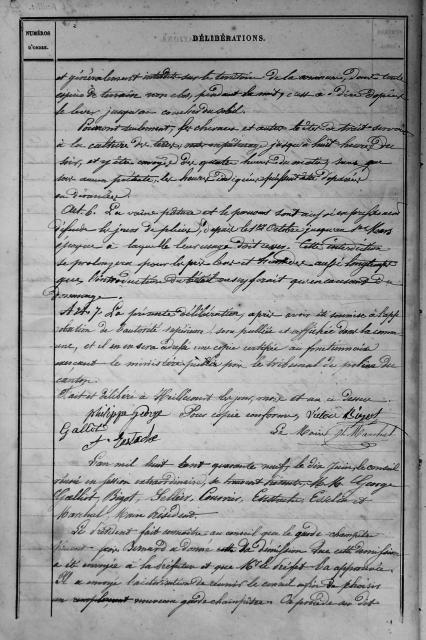 NUMÉROS
D'ORDRE.
DÉLIBÉRATIONS.
et généralement interdite sur le territoire de la commune, dans toute
espèce de terrain non clos, pendant la nuit, c'est à dire depuis
le lever jusqu'au coucher du soleil.
Pourront seulement, les chevaux et autres bêtes de trait servant
à la culture des terres, jusqu'à huit heures du
soir, et y être envoyés dès quatre heures du matin, sans que
sous aucun prétexte, les heures
en
Art. 6. La vaine pâture et le parcours sont aussi expressément
défendus les jours de pluie, depuis le 1er Octobre jusqu'au 1er Mars
époque à laquelle leur usage doit cesser. Cette interdiction
se prolongera pour le aussi longtemps
que l'introduction du bétail n'y ferait qu'en causant du
dommage.
Art. 7. La présente délibération, après avoir été soumise à l'app
robation de l'autorité supérieure, sera publiée et affichée dans la comm
une, et il en sera adressé une copie certifiée au fonctionnaire
exerçant le ministère public près le tribunal de police du
canton.
Fait et délibéré à les jour, mois et an ci dessus.
philippe george Pour copie conforme, Victor Bigot
Gallot
J. Eustache Le Maire
L'an mil huit cent quarante neuf, le dix Juin, le conseil
réuni en session extraordinaire, se trouvent présents M.M. George
Gallot, Bigot, Eustache, et
Marchal Maire Président.
Le Président fait connaître au conseil que le garde champêtre
a donné sa démission. Que cette démission
a été envoyée à la Préfecture et que Mr le Préfet l'a approuvée.
Il a envoyé l'autorisation de réunir le conseil afin de choisir
un nouveau garde champêtre. On procède au dit